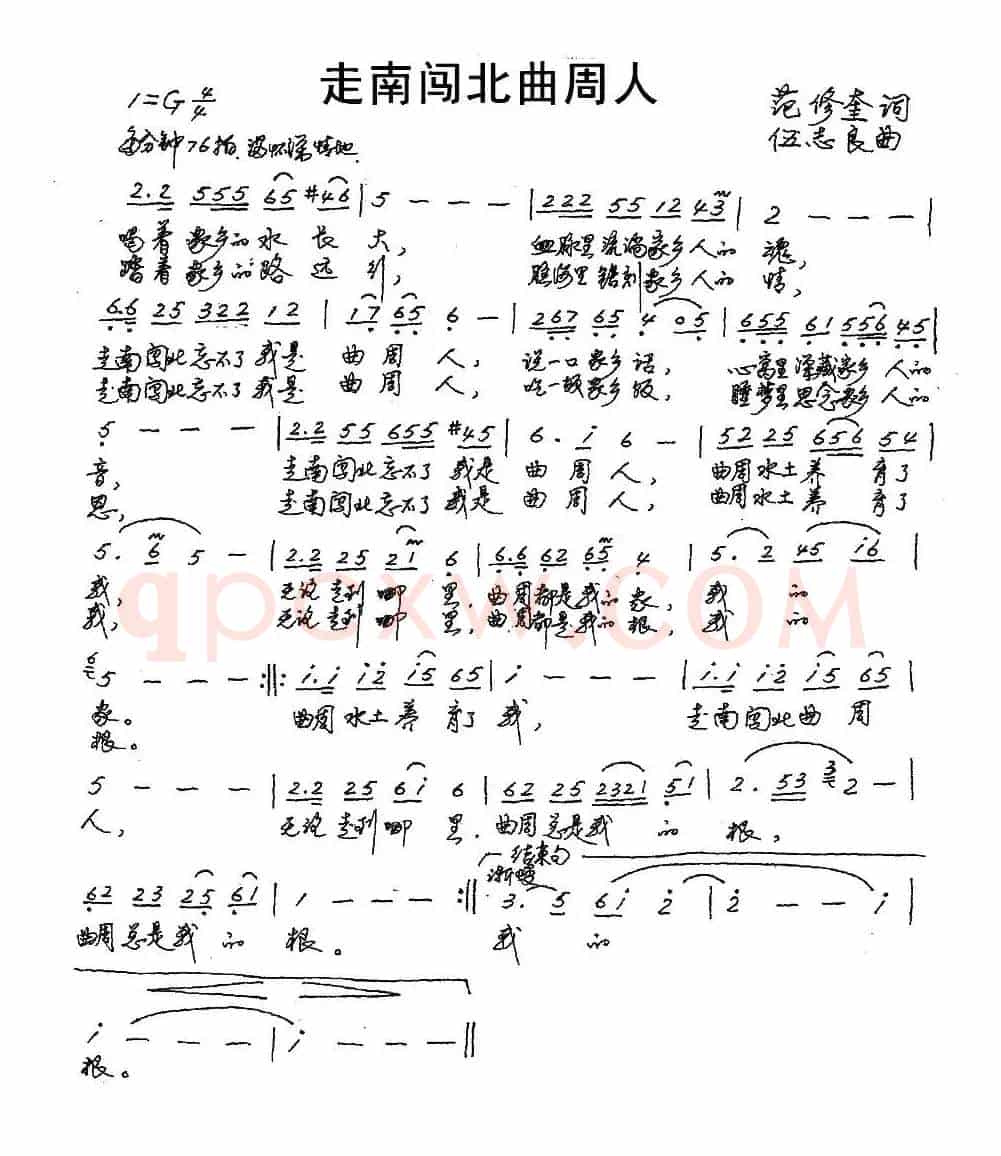 走南闯北曲周人
1=G 4/4
范修奎词
伍志良曲
每分钟76拍 满怀深情地
2.2 555 65 #46 | 5 - - - | 222 55 12 43 | 2 - - - |
喝着家乡的水长大， 血脉里流淌家乡人的魂，
踏着家乡的路远行， 脑海里镌刻家乡人的情，
6.6 25 322 12 | 17 65 6 - | 267 65 4 05 | 655 61 556 45 |
走南闯北忘不了我是曲周人， 说一口家乡话， 心窝里深藏家乡人的
走南闯北忘不了我是曲周人， 吃一顿家乡饭， 睡梦里思念家乡人的
5 - - - | 2.2 55 655 #45 | 6. i 6 - | 52 25 656 54 |
音， 走南闯北忘不了我是曲周人， 曲周水土养育了
恩， 走南闯北忘不了我是曲周人， 曲周水土养育了
5. 6 5 - | 2.2 25 21 6 | 6.6 62 65 4 | 5. 2 45 i6 |
我， 无论走到哪里，曲周都是我的家， 我的
我， 无论走到哪里，曲周都是我的根， 我的
qpcxw.COM
6 5 - - - :||: i.i i2 i5 65 | i - - - | i.i i2 i5 65 |
家。 曲周水土养育了我， 走南闯北曲周
根。
5 - - - | 2.2 25 6i 6 | 62 25 2321 51 | 2. 53 3 2 - |
人， 无论走到哪里，曲周总是我的根，
结束句
渐慢
62 23 25 61 | 1 - - - :|| 3. 5 6i 2 | 2 - - i |
曲周总是我的根。 我的
i - - - | i - - - ||
根。